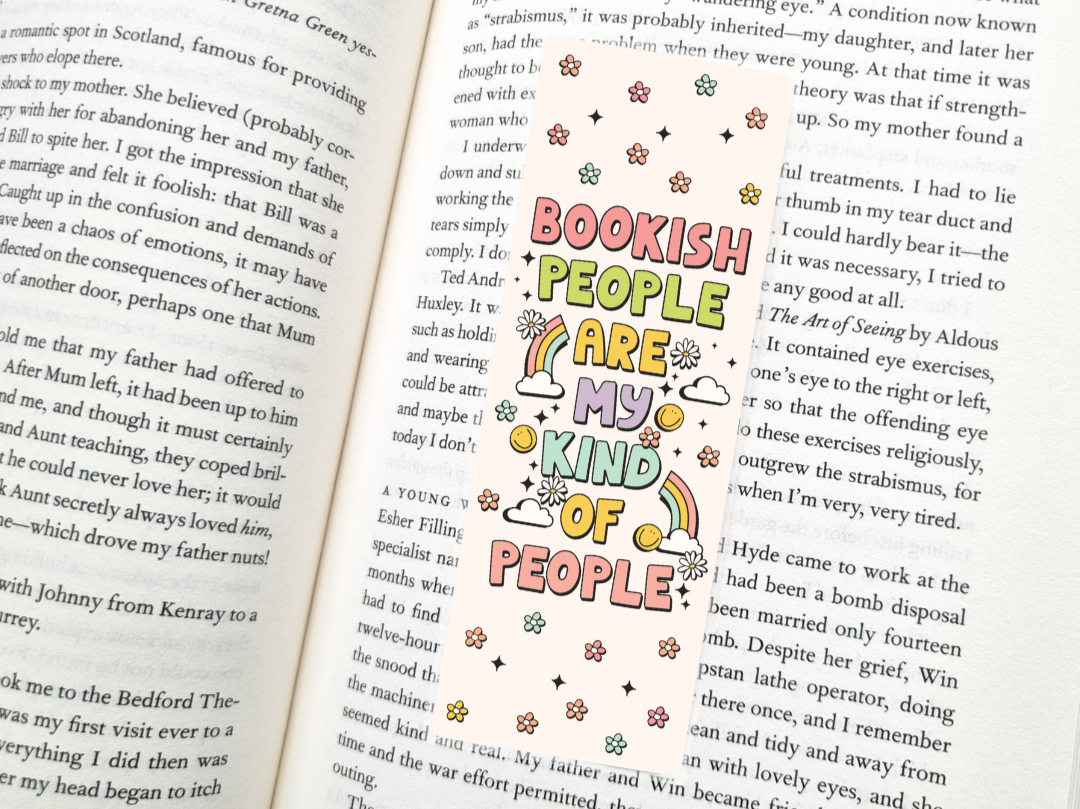 Gretna Green yes-
a romantic spot in Scotland, famous for providing
who elope there.
shock to my mother. She believed (probably cor-
with her for abandoning her and my father,
Bill to spite her. I got the impression that she
marriage and felt it foolish: that Bill was a
Caught up in the confusion and demands of
have been a chaos of emotions, it may have
on the consequences of her actions.
of another door, perhaps one that Mum
told me that my father had offered to
After Mum left, it had been up to him
me, and though it must certainly
and Aunt teaching, they coped bril-
he could never love her; it would
Aunt secretly always loved him,
which drove my father nuts!
with Johnny from Kenray to a
took me to the Bedford The-
was my first visit ever to a
everything I did then was
my head began to itch
eye.” A condition now known
as “strabismus,” it was probably inherited—my daughter, and later her
son, had the problem when they were young. At that time it was
thought to theory was that if strength-
ened with up. So my mother found a
woman who
I treatments. I had to lie
down and thumb in my tear duct and
working the I could hardly bear it—the
tears simply it was necessary, I tried to
comply. I any good at all.
Ted The Art of Seeing by Aldous
Huxley. It It contained eye exercises,
such as one’s eye to the right or left,
and wearing so that the offending eye
could be these exercises religiously,
and maybe outgrew the strabismus, for
today I don’t when I’m very, very tired.
A YOUNG Hyde came to work at the
Esher had been a bomb disposal
specialist been married only fourteen
months Despite her grief, Win
had to find lathe operator, doing
twelve-hour there once, and I remember
the snood and tidy and away from
the with lovely eyes, and she
seemed kind and real. My father and Win became
time and the war effort permitted,
outing.
BOOKISH
PEOPLE
ARE
MY
KIND
OF
PEOPLE